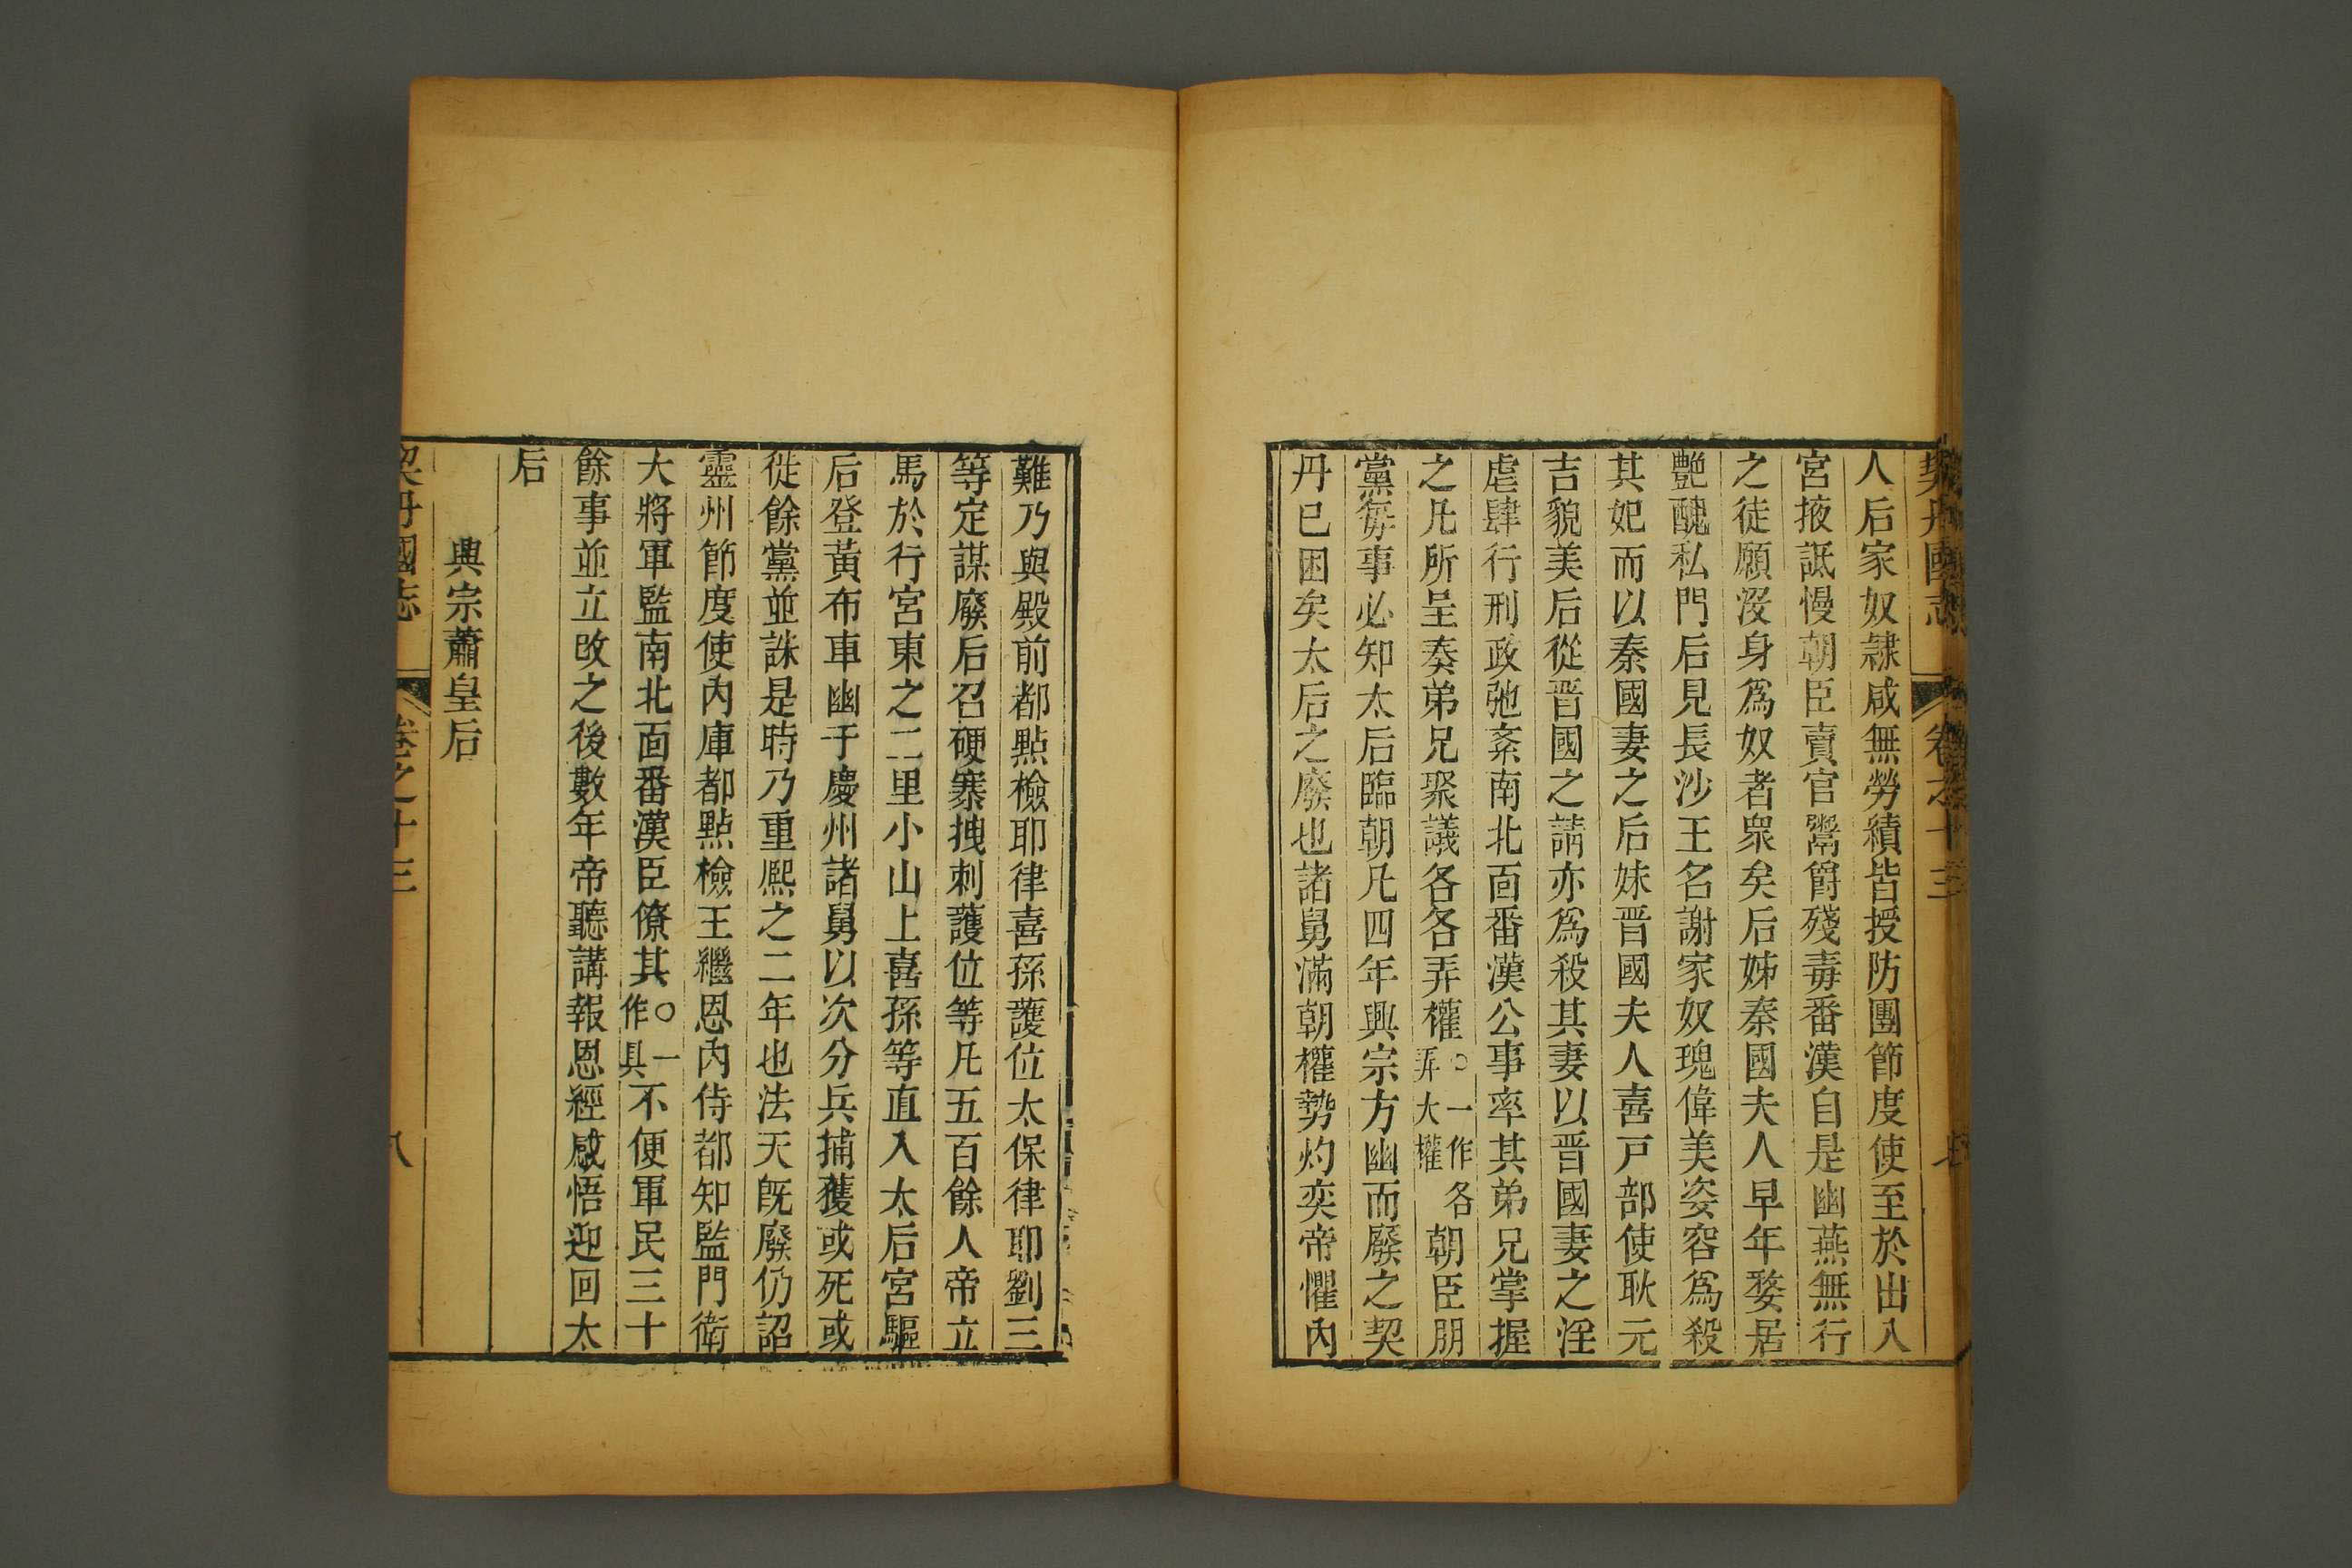 契丹國志 卷之十三 七
人后家奴隸咸無勞績皆授防團節度使至於出入
宮掖詆慢朝臣賣官鬻爵殘毒番漢自是幽燕無行
之徒願沒身爲奴者衆矣后姊秦國夫人早年嫠居
艷醜私門后見長沙王名謝家奴瑰偉美姿容爲殺
其妃而以秦國妻之后妹晋國夫人喜戸部使耿元
吉貌美后從晋國之請亦爲殺其妻以晋國妻之淫
虐肆行刑政弛紊南北面番漢公事率其弟兄掌握
之凡所呈奏弟兄聚議各各弄權○一作各弄大權朝臣朋
黨每事必知太后臨朝凡四年興宗方幽而廢之契
丹已困矣太后之廢也諸舅滿朝權勢灼奕帝懼內
難乃與殿前都點檢耶律喜孫護位太保律耶劉三
等定謀廢后召硬寨拽刺護位等凡五百餘人帝立
馬於行宮東之二里小山上喜孫等直入太后宮驅
后登黃布車幽于慶州諸舅以次分兵捕獲或死或
徙餘黨並誅是時乃重熈之二年也法天旣廢仍詔
靈州節度使內庫都點檢王繼恩內侍都知監門衛
大將軍監南北面番漢臣僚其○一作具不便軍民三十
餘事並立改之後數年帝聽講報恩經感悟迎回太
后
興宗蕭皇后
契丹國志 卷之十三 八